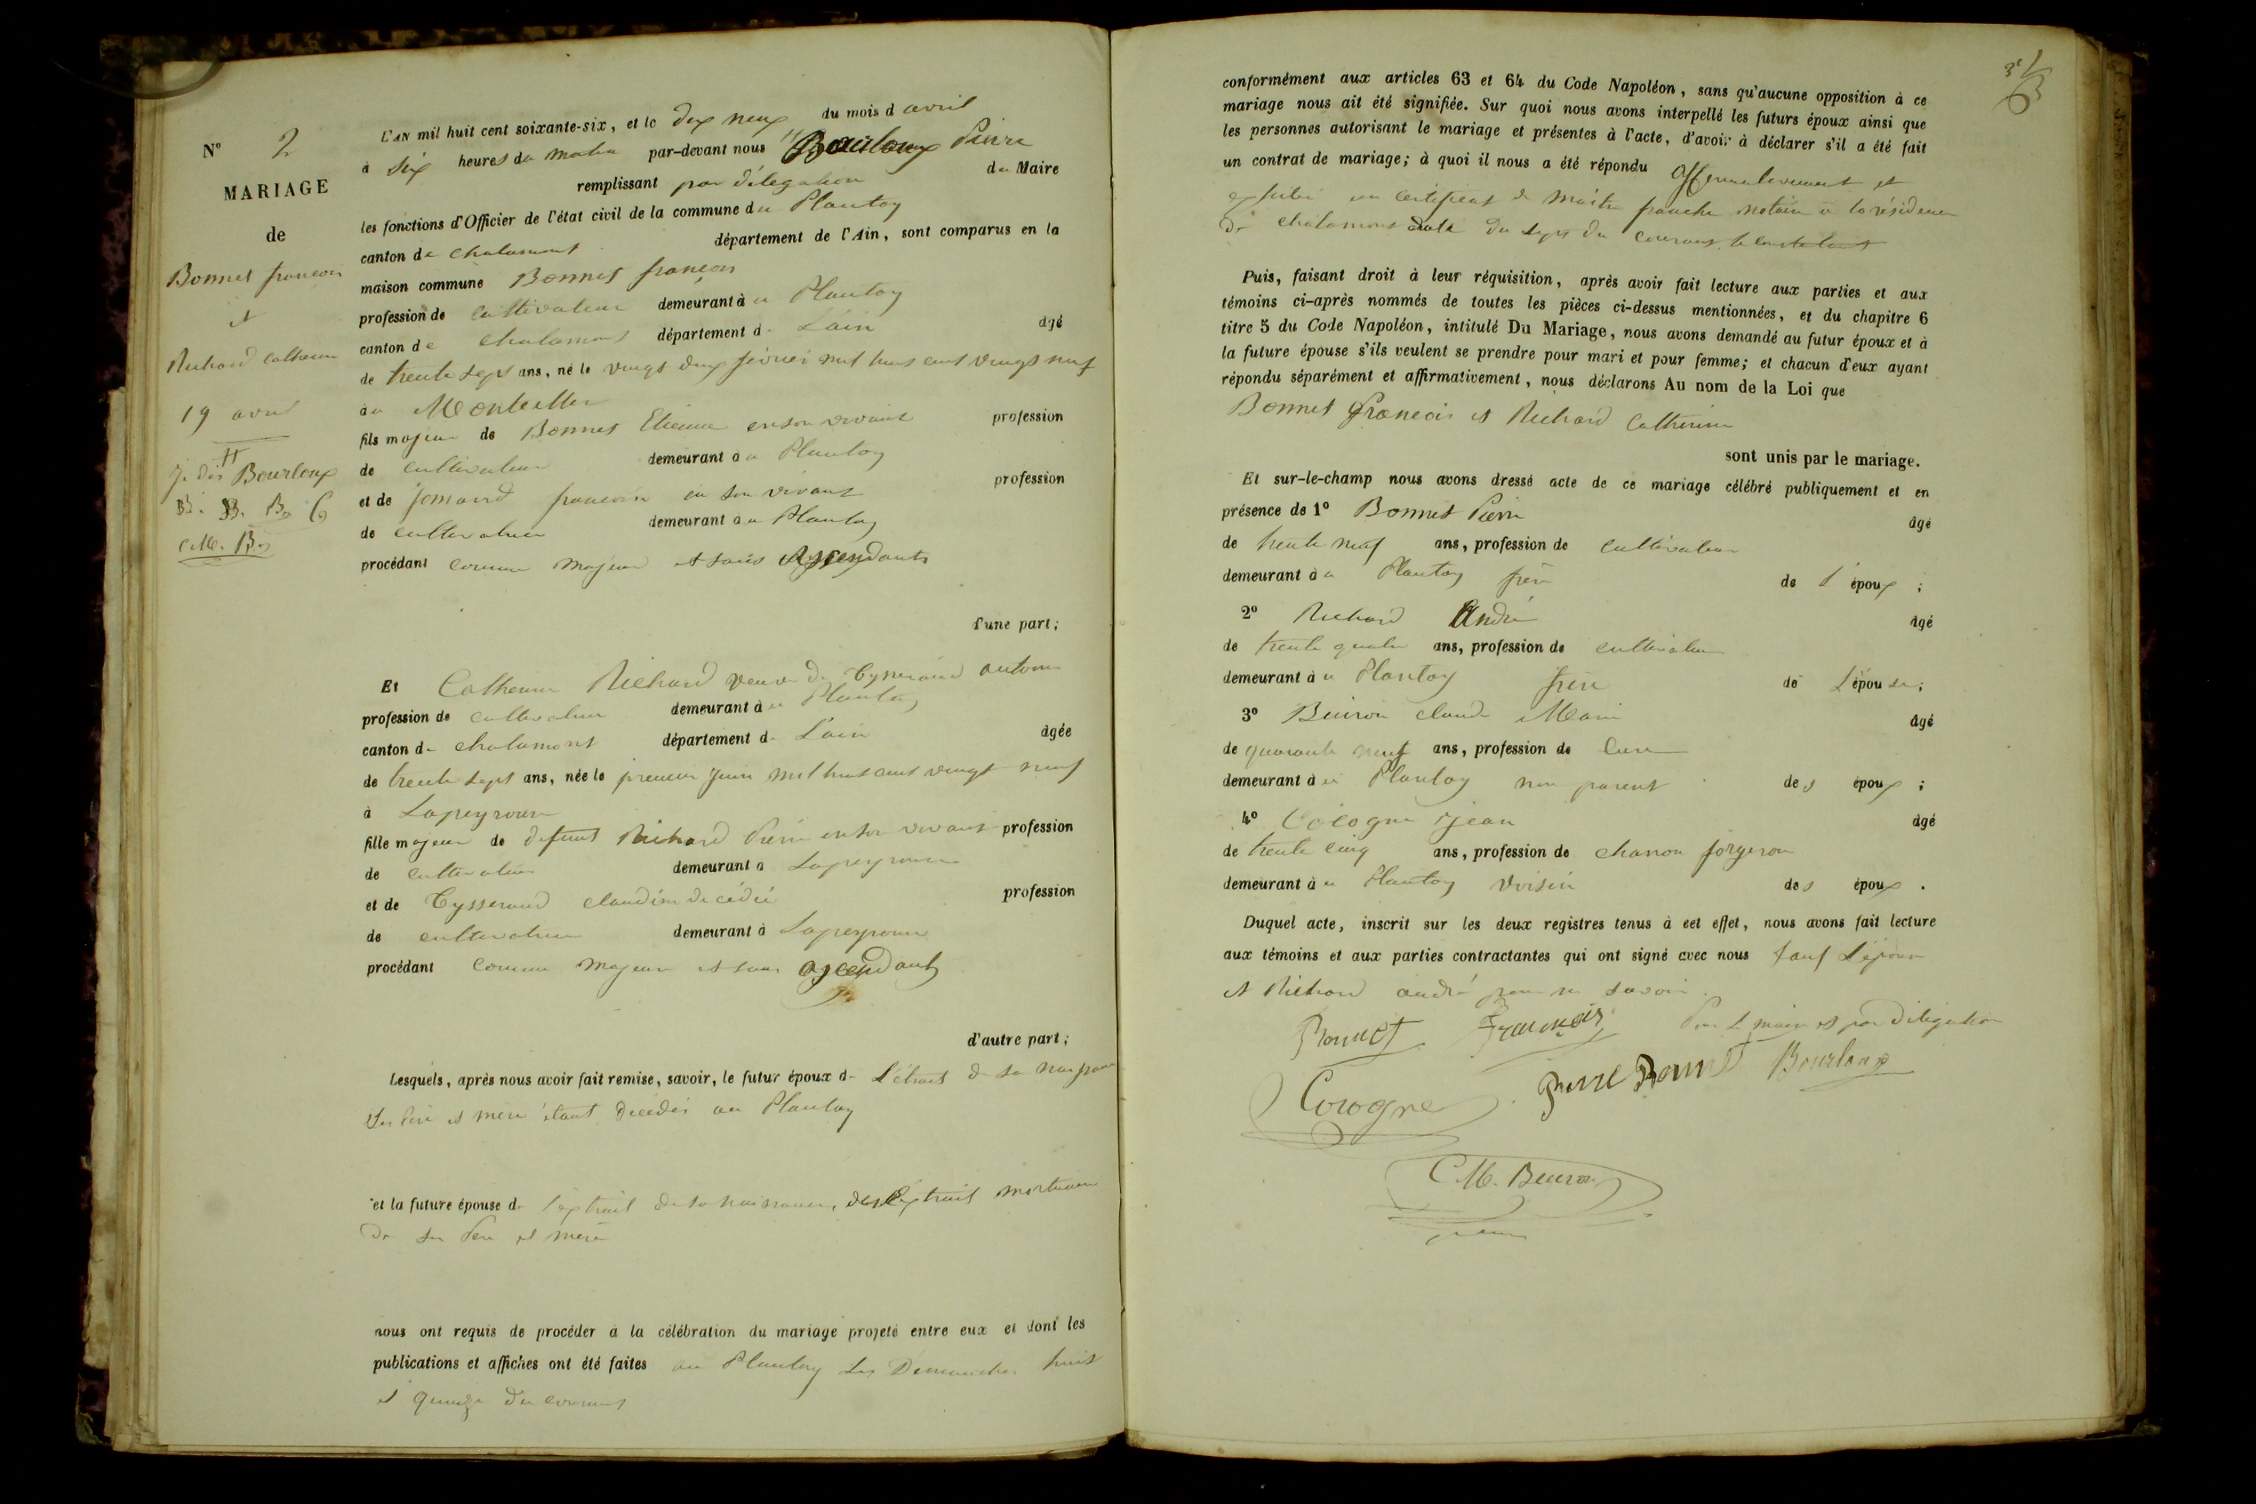 N° 2
MARIAGE
de
Bonnet francois
et
Richard Catherine
19 avril
Je dis Bourloux
B. B. Bx C
C.M. B.
L'AN mil huit cent soixante-six, et le dix neuf du mois d avril
à six heures du matin par-devant nous Bourloux Pierre
remplissant par délégation du Maire
les fonctions d'Officier de l'état civil de la commune du Plantay
canton de chalamont département de l'Ain, sont comparus en la
maison commune Bonnet françois
profession de cultivateur demeurant à u Plantay
canton de chalamont département de L'ain âgé
de trente sept ans, né le vingt deux février mil huit cent vingt neuf
à u Montellier
fils majeur de Bonnet Etienne en son vivant profession
de cultivateur demeurant à u Plantay
et de Jomard francoise en son vivant profession
de cultivateur demeurant à u Plantay
procédant comme majeur et sans Ascendants
d'une part;
Et Catherine Richard veuve de Tysserand antoine
profession de cultivateur demeurant à u Plantay
canton de chalamont département de L'ain âgée
de trente sept ans, née le premier Juin mil huit cent vingt neuf
à Lapeyrouse
fille majeure de defunt Richard Pierre en son vivant profession
de cultivateur demeurant à Lapeyrouse
et de Tysserand claudine décédée profession
de cultivateur demeurant à Lapeyrouse
procédant comme majeure et sans ascendants
d'autre part;
Lesquels, après nous avoir fait remise, savoir, le futur époux de L'étrait de sa naissance
Ses Père et mère étant décédés au Plantay
et la future épouse de l'extrait de sa naissance, des Extrait mortuaire
de ses Père et mère
nous ont requis de procéder à la célébration du mariage projeté entre eux et dont les
publications et affiches ont été faites au Plantay les Dimanches huit
et quinze du courant
conformément aux articles 63 et 64 du Code Napoléon, sans qu'aucune opposition à ce
mariage nous ait été signifiée. Sur quoi nous avons interpellé les futurs époux ainsi que
les personnes autorisant le mariage et présentes à l'acte, d'avoir à déclarer s'il a été fait
un contrat de mariage; à quoi il nous a été répondu Affirmativement et
un certificat de Maître franche notaire à la résidence
de chalamont daté du sept du courant le constatant
Puis, faisant droit à leur réquisition, après avoir fait lecture aux parties et aux
témoins ci-après nommés de toutes les pièces ci-dessus mentionnées, et du chapitre 6
titre 5 du Code Napoléon, intitulé Du Mariage, nous avons demandé au futur époux et à
la future épouse s'ils veulent se prendre pour mari et pour femme; et chacun d'eux ayant
répondu séparément et affirmativement, nous déclarons Au nom de la Loi que
Bonnet francois et Richard Catherine
sont unis par le mariage.
Et sur-le-champ nous avons dressé acte de ce mariage célébré publiquement et en
présence de 1° Bonnet Pierre âgé
de trente neuf ans, profession de cultivateur
demeurant à u Plantay frère de l'époux;
2° Richard André âgé
de trente quatre ans, profession de cultivateur
demeurant à u Plantay frère de L'épouse;
3° Beuron claude Marie âgé
de quarante neuf ans, profession de Curé
demeurant à u Plantay non parent des époux;
4° Cologne Jean âgé
de trente cinq ans, profession de charron forgeron
demeurant à u Plantay voisin des époux.
Duquel acte, inscrit sur les deux registres tenus à cet effet, nous avons fait lecture
aux témoins et aux parties contractantes qui ont signé avec nous sauf L'épouse
et Richard andré pour ne savoir.
Bonnet François Pour le maire et par Délégation
Pierre Bonnet Bourloux
Cologne
C.M. Beuron